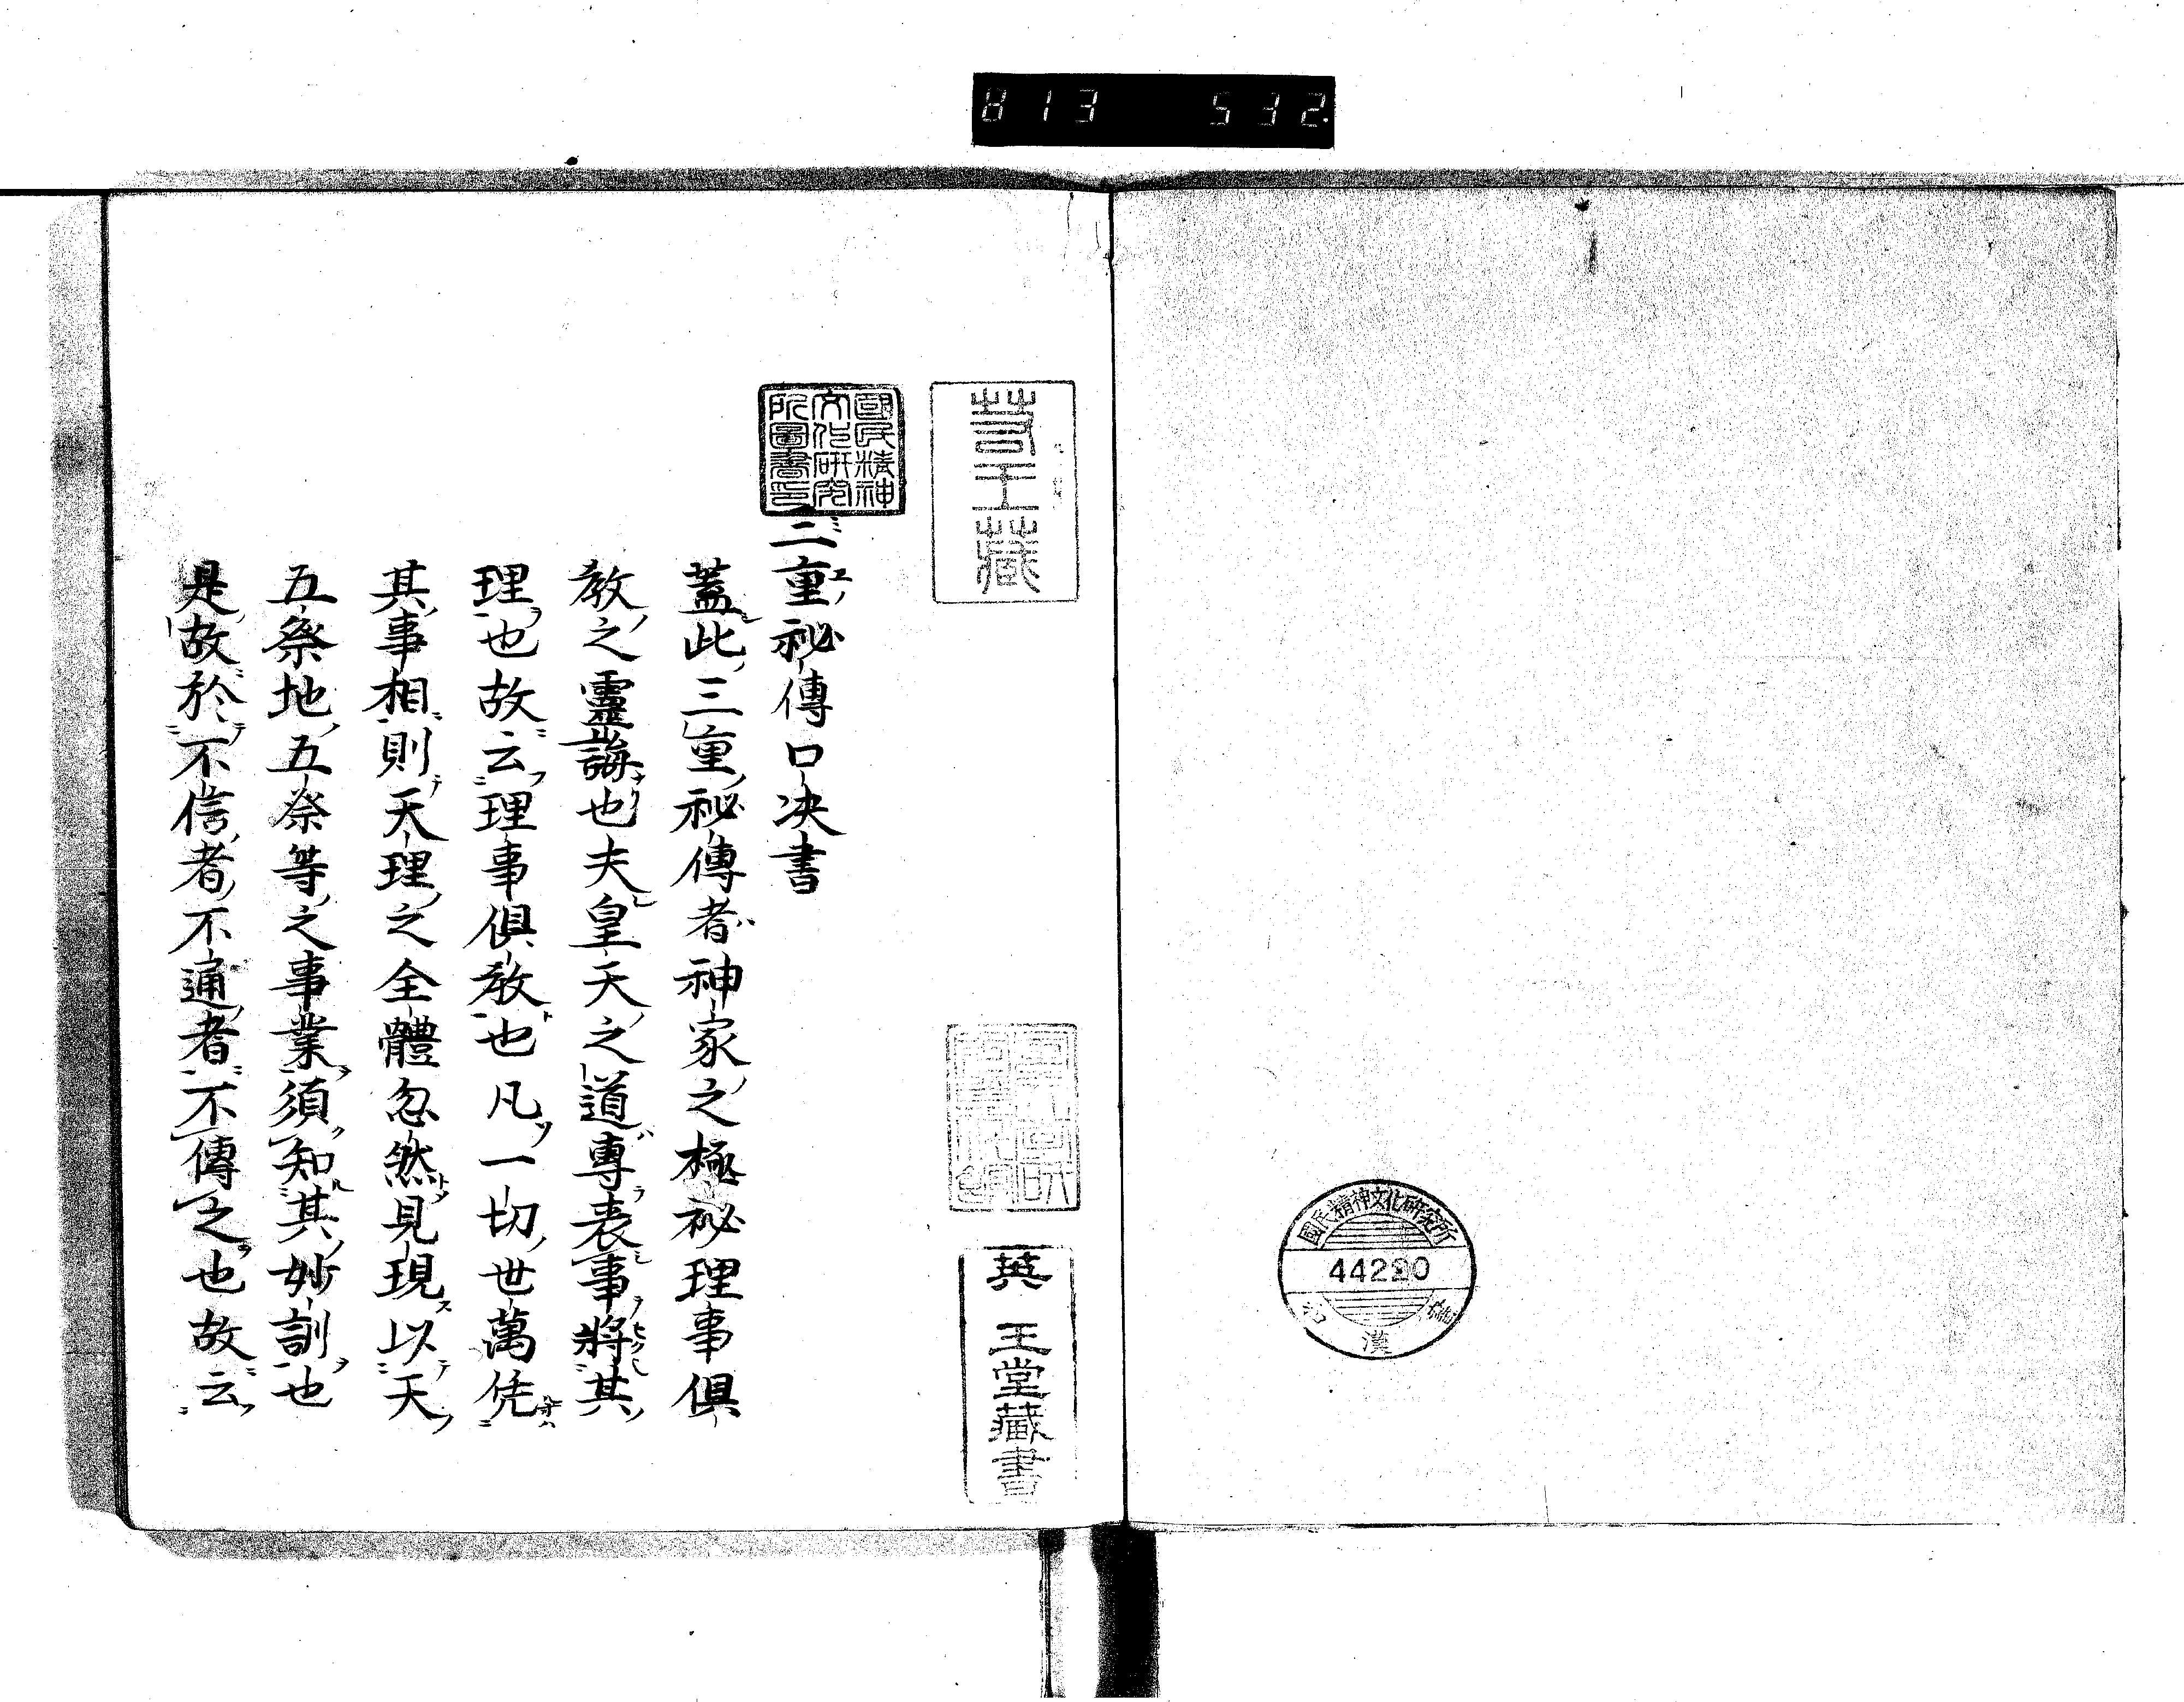 813 532
國民精神文化研究所
44220
漢
英王堂藏書
國民精神
文化研究
所圖書印
三重祕傳口决書
蓋此三重祕傳者神家之極祕理事俱
教之靈誨也夫皇天之道專表事將其
理也故云理事俱教也凡一切世萬凭
其事相則天理之全體忽然見現以天
五祭地五祭等之事業須知其妙訓也
是故於不信者不通者不傳之也故云